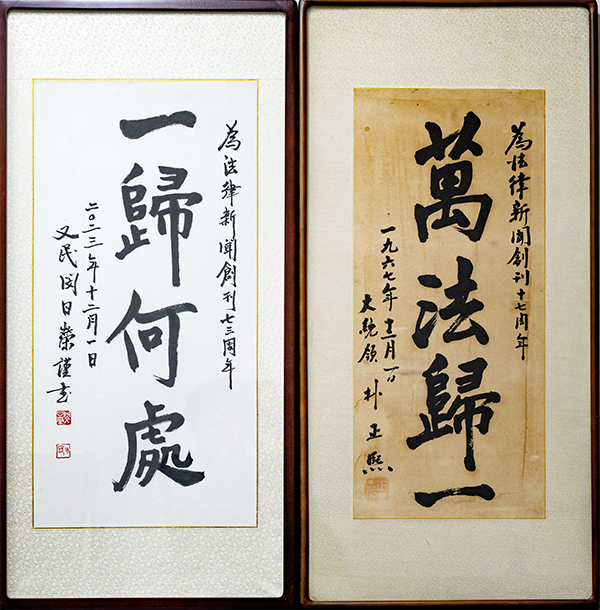 為法律新聞創刊十七周年
萬法歸一
一九六七年十二月一日
大統領 朴正熙
為法律新聞創刊七三周年
一歸何處
二〇二三年十二月一日
又民 閔日榮 謹書